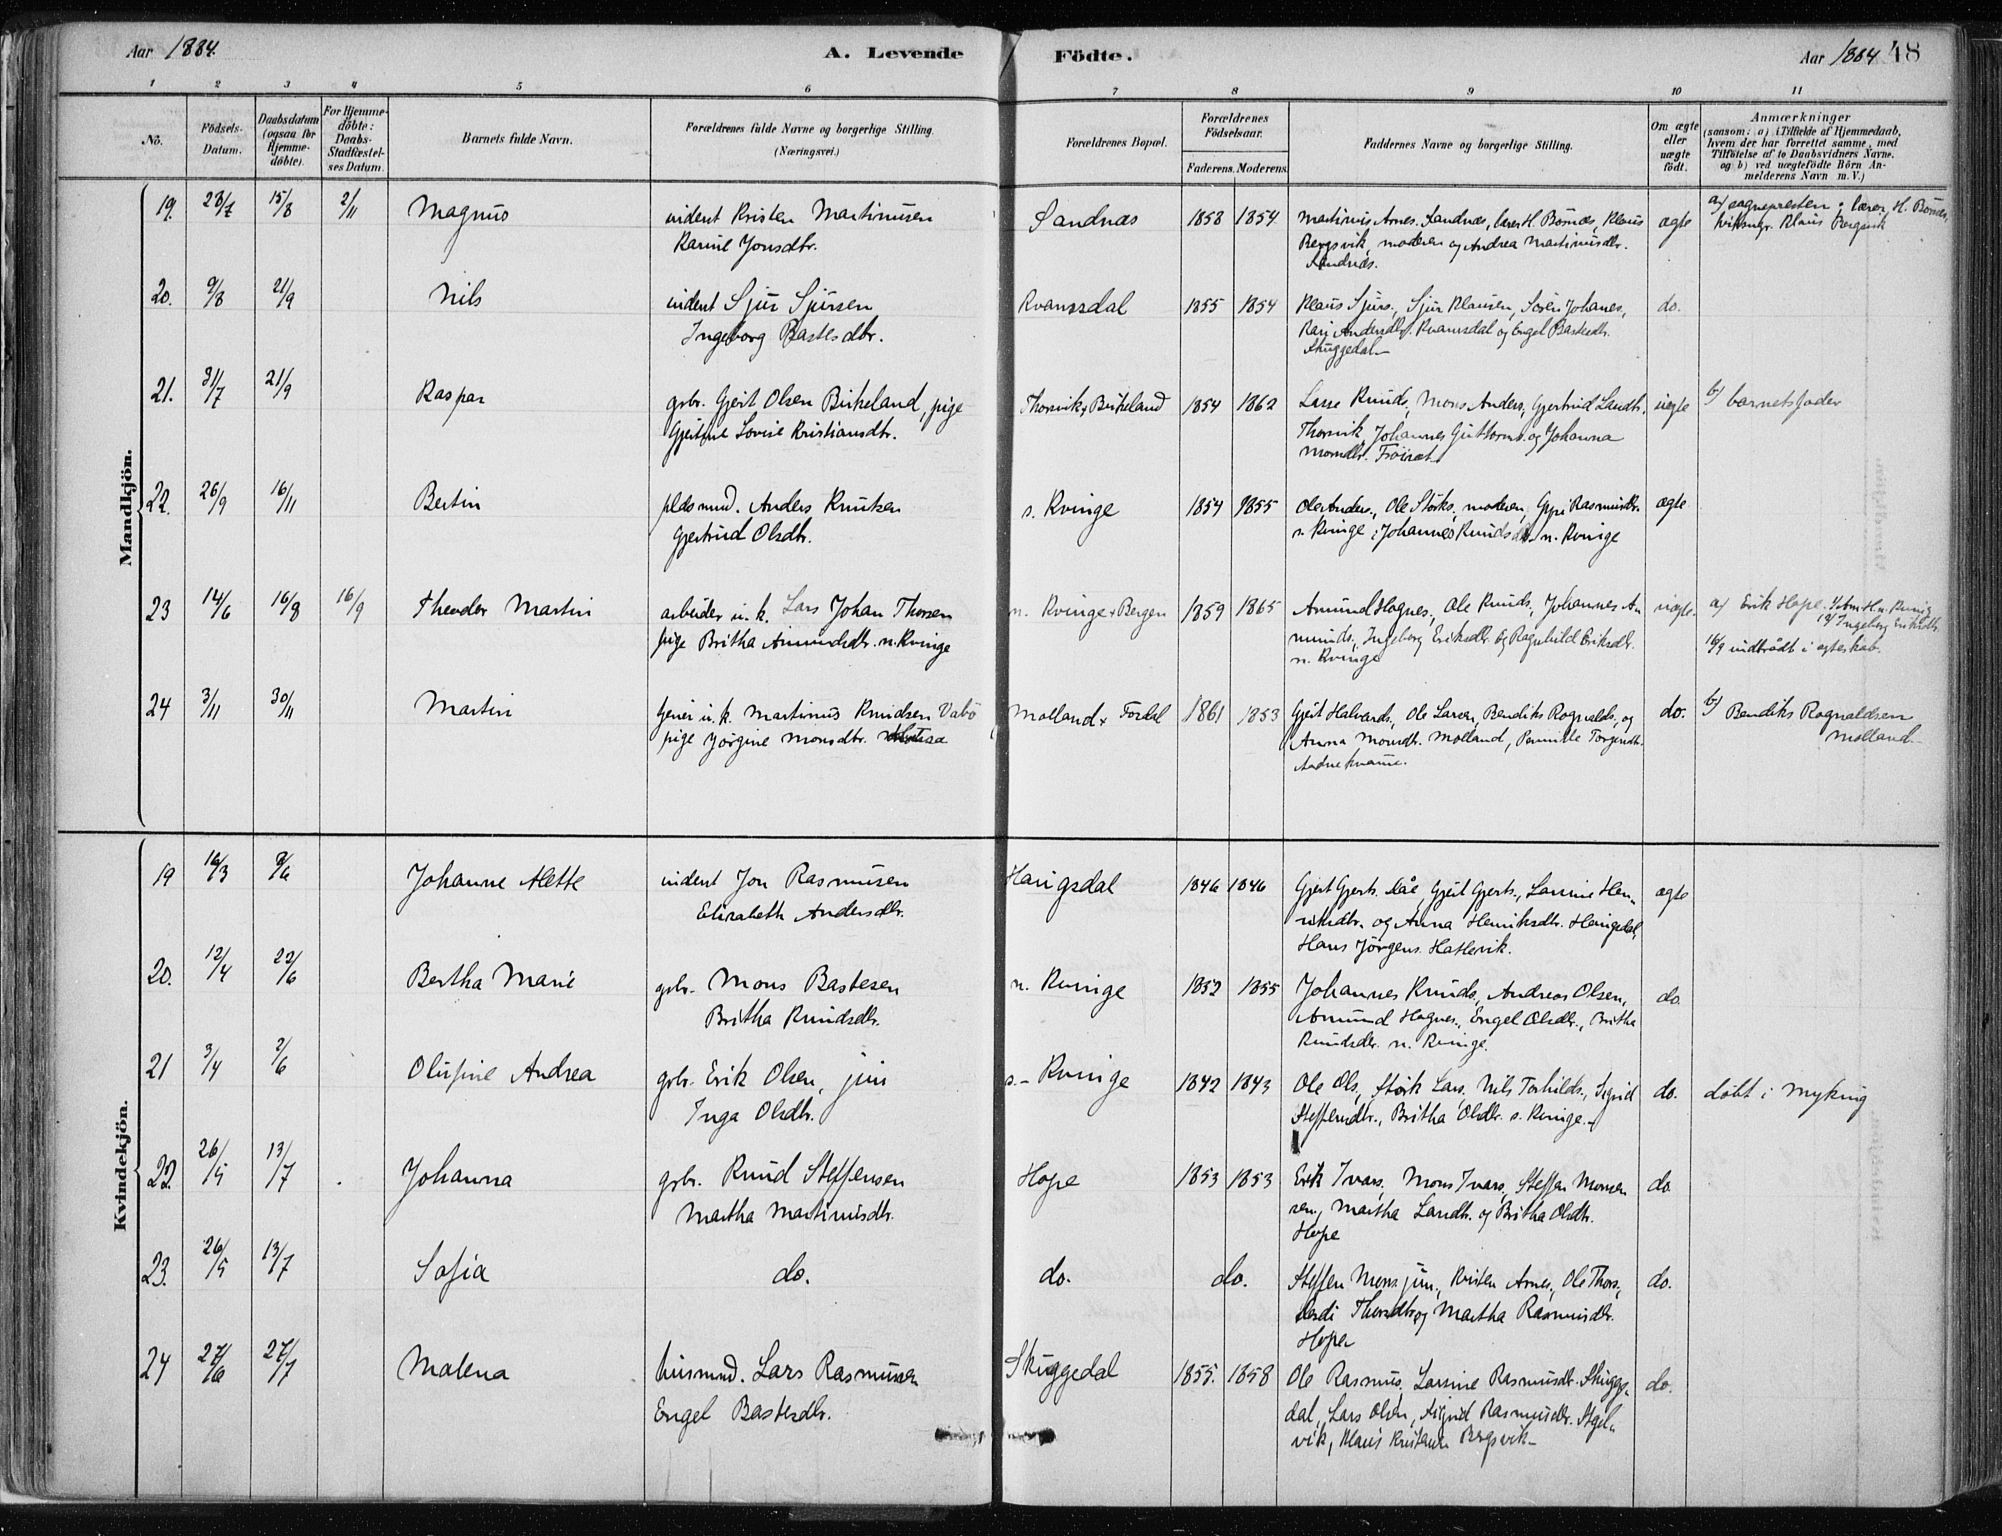 Aar 1884.
A. Levende Födte.
Aar 1884
48
1 2 3 4 5 6 7 8 9 10 11
No.
Födsels-Datum.
Daabsdatum (ogsaa for Hjemme-döbte).
For Hjemme-döbte: Daabs-Stadfæstel-ses Datum.
Barnets fulde Navn.
Forældrenes fulde Navne og borgerlige Stilling. (Næringsvei.)
Forældrenes Bopæl.
Forældrenes Födselsaar.
Faderens. Moderens.
Faddernes Navne og borgerlige Stilling.
Om ægte eller uægte födt.
Anmærkninger
(saasom: a) i Tilfælde af Hjemmedaab, hvem der har forrettet samme, med Tilföielse af to Daabsvidners Navne. og b) ved uægtefödte Börn An-melderens Navn m. V.)
Mandkjön.
19. 28/7 15/8 2/11 Magnus
inident Kristen Martinusen
Karine Jonsdtr.
Sandnæs 1858 1854
Martinus Arnes. Sandnæs, lærer H. Börnæs, Klaus
Bergsvik, moderen og Andrea Martinusdtr.
Sandnæs.
ægte
a/ sognepresten; lærer H. Börnæs,
Klaus Bergsvik
20. 9/8 21/9 Nils
inident Sjur Sjursen
Ingeborg Bastesdtr.
Kvamsdal 1855 1854
Klaus Sjurs., Sjur Klausen, Sören Johanes,
Kari Andersdtr. Kvamsdal og Engel Bastesdtr.
Skuggedal
do.
21. 31/7 21/9 Kaspar
gbr. Gjert Olsen Birkeland, pige
Gjertine Lovise Kristiansdtr.
Thorsvik, Birkeland 1854 1862
Lasse Knuds., Mons Anders., Gjertrud Larsdtr.
Thorsvik, Johannes Guttorms. og Johanna
Monsdtr. Fröiset
uægte
b/ barnets fader
22. 26/9 16/11 Bertin
pladsmd. Anders Knutsen
Gjertrud Olsdtr.
s. Kvinge 1854 1855
Ole Anders., Ole Störks., moderen, Gyri Rasmusdtr.
s. Kvinge; Johannes Knuds n. Kvinge
ægte
23 14/6 16/8 16/9 Theodor Martin
arbeider u. k. Lars Johan Thorsen
pige Britha Amundsdtr. n. Kvinge
n. Kvinge + Bergen 1859 1865
Amund Hognes., Ole Knuds., Johannes A-
munds., Ingeborg Eriksdtr. og Ragnhild Eriksdtr.
n. Kvinge
uægte.
a/ Erik Hope.
Ingeborg Eriksdtr.
16/9 indtrådt i ægteskab.
24 3/11 30/11 Martin
tjener u. k. Martinus Knudsen Vabö
pige Jörgine Monsdtr.
Molland + Fordal 1861 1853
Gjert Halvards., Ole Larsen, Bendiks Rognalds., og
Anna Monsdtr. Molland, Pernille Torgersdtr.
Andvekvamme.
do.
b/ Bendiks Rognaldsen
Molland.
Kvindekjön.
19 16/3 2/6 Johanne Alette
inident Jon Rasmusen
Elisabeth Andersdtr.
Haugsdal 1846 1846
Gjert Gjerts. Aae, Gjert Gjerts., Larsine Hen-
riksdtr. og Anna Henriksdtr. Haugsdal,
Hans Jörgens. Hatlevik.
ægte
20. 12/4 22/6 Bertha Marie
gbr. Mons Bastesen
Britha Knudsdtr.
n. Kvinge 1852 1855
Johannes Knuds., Andreas Olsen,
Amund Hognes., Engel Olsdtr., Britha
Knudsdtr. n. Kvinge.
do.
21 3/4 2/6 Olufine Andrea
gbr. Erik Olsen, jun
Inga Olsdtr.
s. Kvinge 1842 1843
Ole Ols., Störk Lars., Nils Torkilds., Sigrid
Steffensdtr., Britha Olsdtr. s. Kvinge.
do.
döbt i Myking
22. 26/5 13/7 Johanna
gbr. Knud Steffensen
Martha Martinusdtr.
Hope 1853 1853
Erik Ivars., Mons Ivars., Steffen Monsen
sen, Martha Larsdtr. og Britha Olsdtr.
Hope
do
23. 26/5 13/7 Sofia
do.
do. do.
Steffen Mons jun., Kristen Arnes., Ole Thors.,
Thorsdtr. og Martha Rasmusdtr.
Hope
do.
24 27/6 27/7 Malena
husmd. Lars Rasmussen
Engel Bastesdtr.
Skuggedal 1855. 1858
Ole Rasmus., Larsine Rasmusdtr. Skugge-
dal, Lars Olsen, Sigrid Rasmusdtr.
vik, Klaus Kristensen Bergsvik
do.